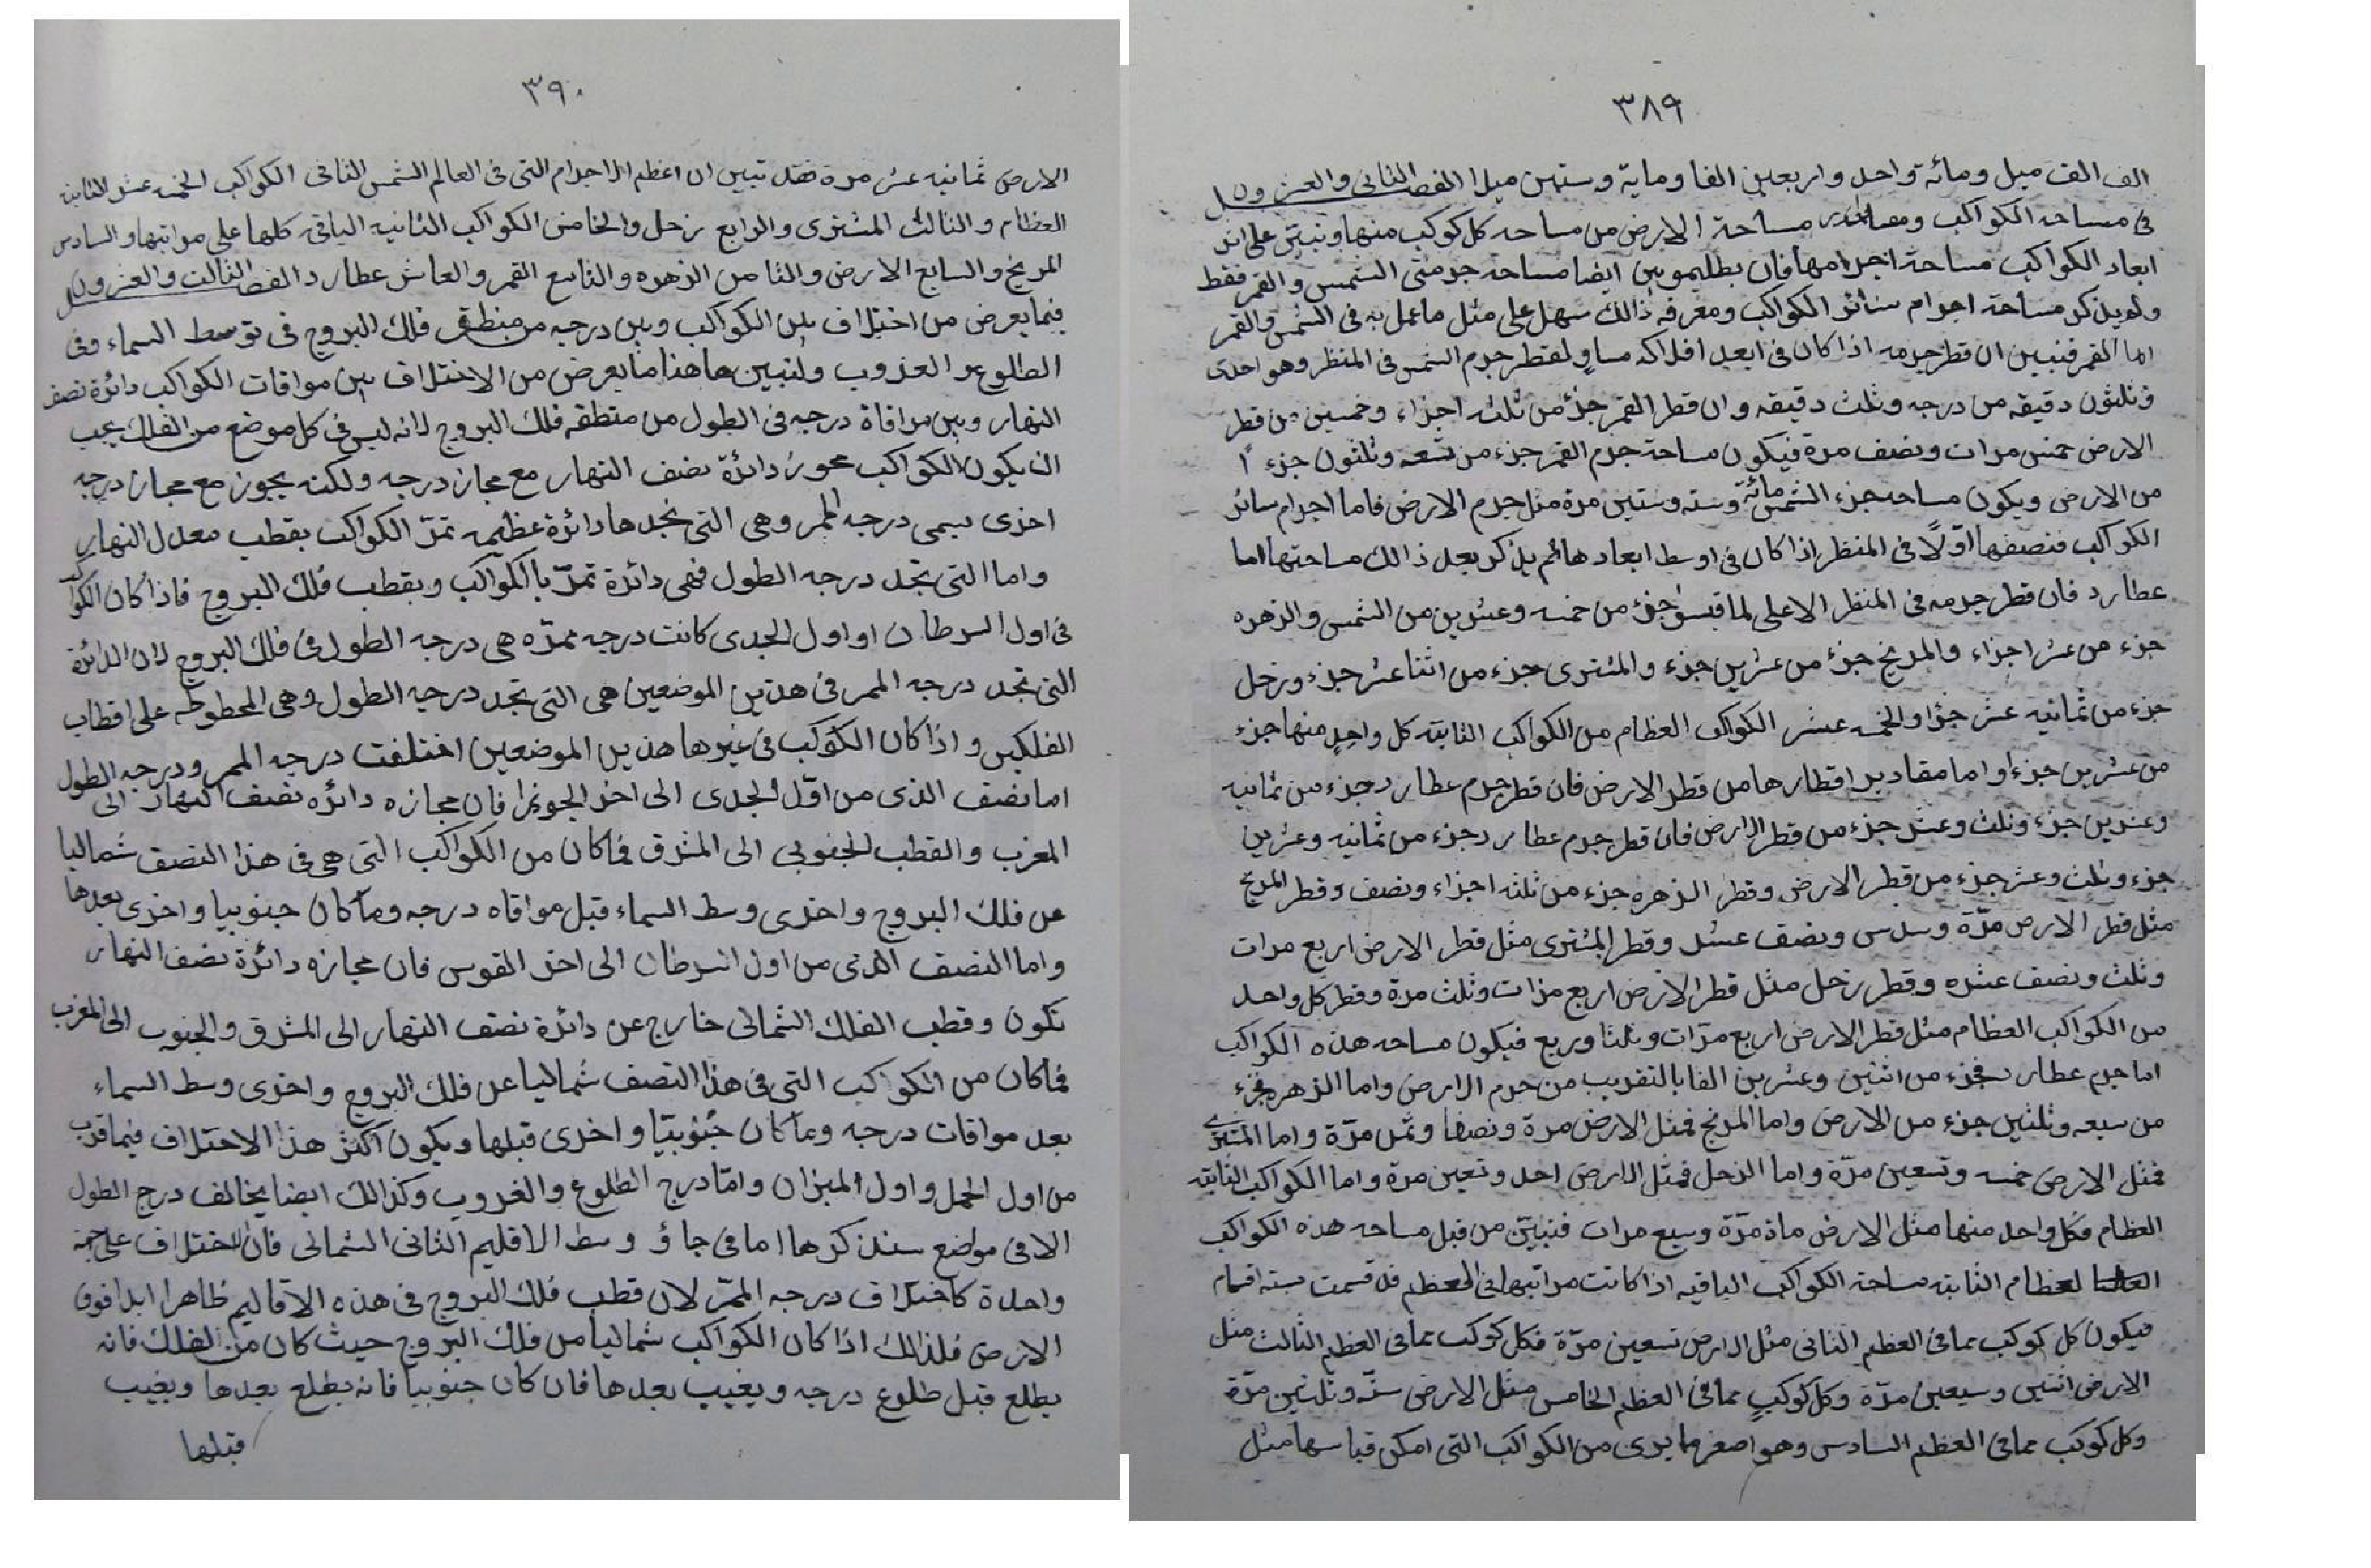 ٣٨٩
الف الف ميل ومائة واحد واربعين الفا وماية وستين ميلا الفصل الثانى والعشرون
فى مساحه الكواكب ومساحة الارض من مساحه كل كوكب منها ونبين على اثر
ابعاد الكواكب مساحة اجرامها فان بطليموس بين ايضا مساحة جرمتى الشمس والقمر فقط
ولم يذكر مساحة اجرام سائر الكواكب ومعرفه ذالك سهل على مثل ما عمل به فى الشمس والقمر
اما القمر فنبين ان قطر جرمه اذا كان فى ابعد افلاكه مساو لقطر جرم الشمس فى المنظر وهو احدى
وثلثون دقيقه من درجه وثلث دقيقه وان قطر القمر جزء من ثلثه اجزاء وخمسين من قطر
الارض خمس مرات ونصف مرة فيكون مساحة جرم القمر جزء من تسعه وثلثون جزء ا
من الارض ويكون مساحه جزء الشمس مائة وسته وستين مرة مثل جرم الارض فاما اجرام سائر
الكواكب فنصفها اولًا فى المنظر اذا كان فى اوسط ابعادها ثم يذكر بعد ذالك مساحتها اما
عطارد فان قطر جرمه فى المنظر الاعلى لما قيس جزء من خمسه وعشرين من الشمس والزهره
جزء من عشر اجزاء والمريخ جزء من عشرين جزء والمشترى جزء من اثنا عشر جزء وزحل
جزء من ثمانيه عشر جزؤا والخمسه عشر الكواكب العظام من الكواكب الثابته كل واحد منها جزء
من عشرين جزءا واما مقادير اقطارها من قطر الارض فان قطر جرم عطارد جزء من ثمانيه
وعشرين جزء وثلث وعشر جزء من قطر الارض فان قطر جرم عطارد جزء من ثمانيه وعشرين
جزء وثلث وعشر جزء من قطر الارض وقطر الزهره جزء من ثلثه اجزاء ونصف وقطر المريخ
مثل قطر الارض مرّة وسدس ونصف عشر وقطر المشترى مثل قطر الارض اربع مرات
وثلث ونصف عشره وقطر زحل مثل قطر الارض اربع مرات وثلث مرة وقطر كل واحد
من الكواكب العظام مثل قطر الارض اربع مرّات وثلثا وربع فيكون مساحه هذه الكواكب
اما جرم عطارد فجزء من اثنين وعشرين الفا بالتقريب من جرم الارض واما الزهره فجزء
من سبعه وثلثين جزء من الارض واما المريخ فمثل الارض مرة ونصفا وثمن مرّة واما المشترى
فمثل الارض خمسه وتسعين مرّة واما الزحل فمثل الارض احد وتعين مرة واما الكواكب الثابته
العظام فكل واحد منها مثل الارض ماة مرّة وسبع مرات فنبيّن من قبل مساحه هذه الكواكب
لعظام الثابته مساحة الكواكب الباقيه اذا كانت مراتبها فى العظم قد قسمت سته اقسام
فيكون كل كوكب مما فى العظم الثانى مثل الارض تسعين مرّة فكل كوكب مما فى العظم الثالث مثل
الارض اثنين وسبعين مرّة وكل كوكب مما فى العظم الخامس مثل الارض ستّه وثلثين مرّة
وكل كوكب مما فى العظم السادس وهو اصغر ما يرى من الكواكب التى امكن قياسها مثل
٣٩٠
الارض ثمانيه عشر مرة فقد تبين ان اعظم الاجرام التى فى العالم الشمس الثانى الكواكب الخمسه عشر الثابته
العظام والثالث المشترى والرابع زحل والخامس الكواكب الثابيه الباقيه كلها على مراتبها والسادس
المريخ والسابع الارض والثامن الزهره والتاسع القمر والعاشر عطارد الفصل الثالث والعشرون
فيما يعرض من اختلاف بين الكواكب وبين درجه من منطقه فلك البروج فى توسط السماء وفى
الطلوع والغروب ولنبين هاهنا ما يعرض من الاختلاف بين موافات الكواكب دائرة نصف
النهار وبين موافاة درجه فى الطول من منطقه فلك البروج لانه ليس فى كل موضع من الفلك يجب
ان يكون الكواكب محوز دائرة نصف النهار مع مجاز درجه ولكنه يجوز مع مجاز درجه
اخرى يسمى درجه الممر وهى التى تحدها دائرة عظيمه تمرّ الكواكب بقطب معدل النهار
واما التى تحد درجه الطول فهى دائرة تمرّ بالكواكب وبقطب فلك البروج فاذا كان الكواكب
فى اول السرطان او اول الجدى كانت درجه ممرّه هى درجه الطول فى فلك البروج لان الدائرة
التى تحد درجه الممر فى هذين الموضعين هى التى تحد درجه الطول وهى المحطوطه على اقطاب
الفلكين واذا كان الكوكب فى غيرها هذين الموضعين اختلفت درجه الممر ودرجه الطول
اما نصف الذى من اوّل الجدى الى اخر الجوزا فان مجازه دائره نصف النهار الى
المغرب والقطب الجنوبى الى المشرق فما كان من الكواكب التى هى فى هذا النصف شماليا
عن فلك البروج واخرى وسط السماء قبل موافاه درجه وما كان جنوبيا واخرى بعدها
واما النصف الذى من اول السرطان الى اخر القوس فان مجازه دائرة نصف النهار
تكون وقطب الفلك الشمالى خارج عن دائرة نصف النهار الى المشرق والجنوب الى المغرب
فما كان من الكواكب التى فى هذا النصف شماليا عن فلك البروج واخرى وسط السماء
بعد موافات درجه وما كان جنوبيّا واخرى قبلها ويكون اكثر هذا الاختلاف فيما قرب
من اول الحمل واول الميزان وامّا درج الطلوع والغروب وكذالك ايضا يخالف درج الطول
الا فى مواضع سنذكرها اما فى جاؤ وسط الاقليم الثانى الشمالى فان الاختلاف على جهة
واحدة كاختلاف درجه الممرّ لان قطب فلك البروج فى هذه الاقاليم ظاهرا ابدا فوق
الارض فلذالك اذا كان الكواكب شماليا من فلك البروج حيث كان من الفلك فانه
يطلع قبل طلوع درجه ويغيب بعدها فان كان جنوبيا فانه يطلع بعدها ويغيب
قبلها